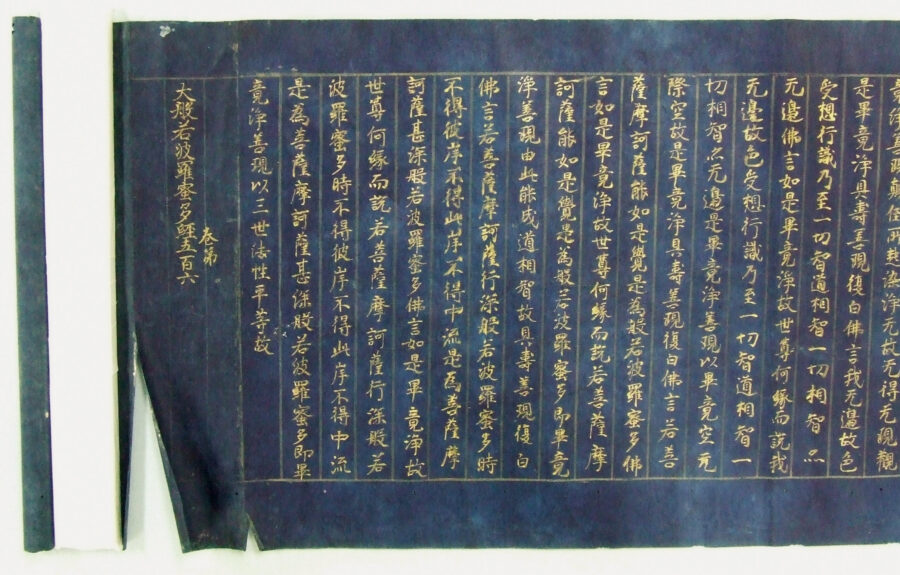 顛倒所起染淨无故无得无現觀
是畢竟淨具壽善現復白佛言我无邊故色
受想行識乃至一切智道相智一切相智亦
无邊佛言如是畢竟淨故世尊何緣而說我
无邊故色受想行識乃至一切智道相智一
切相智亦无邊是畢竟淨善現以畢竟空无
際空故是畢竟淨具壽善現復白佛言若菩
薩摩訶薩能如是覺是為般若波羅蜜多佛
言如是畢竟淨故世尊何緣而說若菩薩摩
訶薩能如是覺是為般若波羅蜜多即畢竟
淨善現由此能成道相智故具壽善現復白
佛言若菩薩摩訶薩行深般若波羅蜜多時
不得彼岸不得此岸不得中流是為菩薩摩
訶薩甚深般若波羅蜜多佛言如是畢竟淨故
世尊何緣而說若菩薩摩訶薩行深般若
波羅蜜多時不得彼岸不得此岸不得中流
是為菩薩摩訶薩甚深般若波羅蜜多即畢
竟淨善現以三世法性平等故
卷第
大般若波羅蜜多經五百六